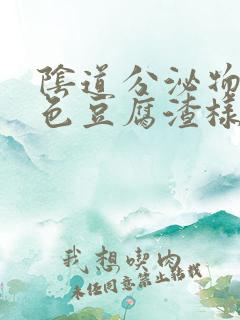 陰道分泌物
色豆腐渣樣
我想喫肉
未经同意禁止转载